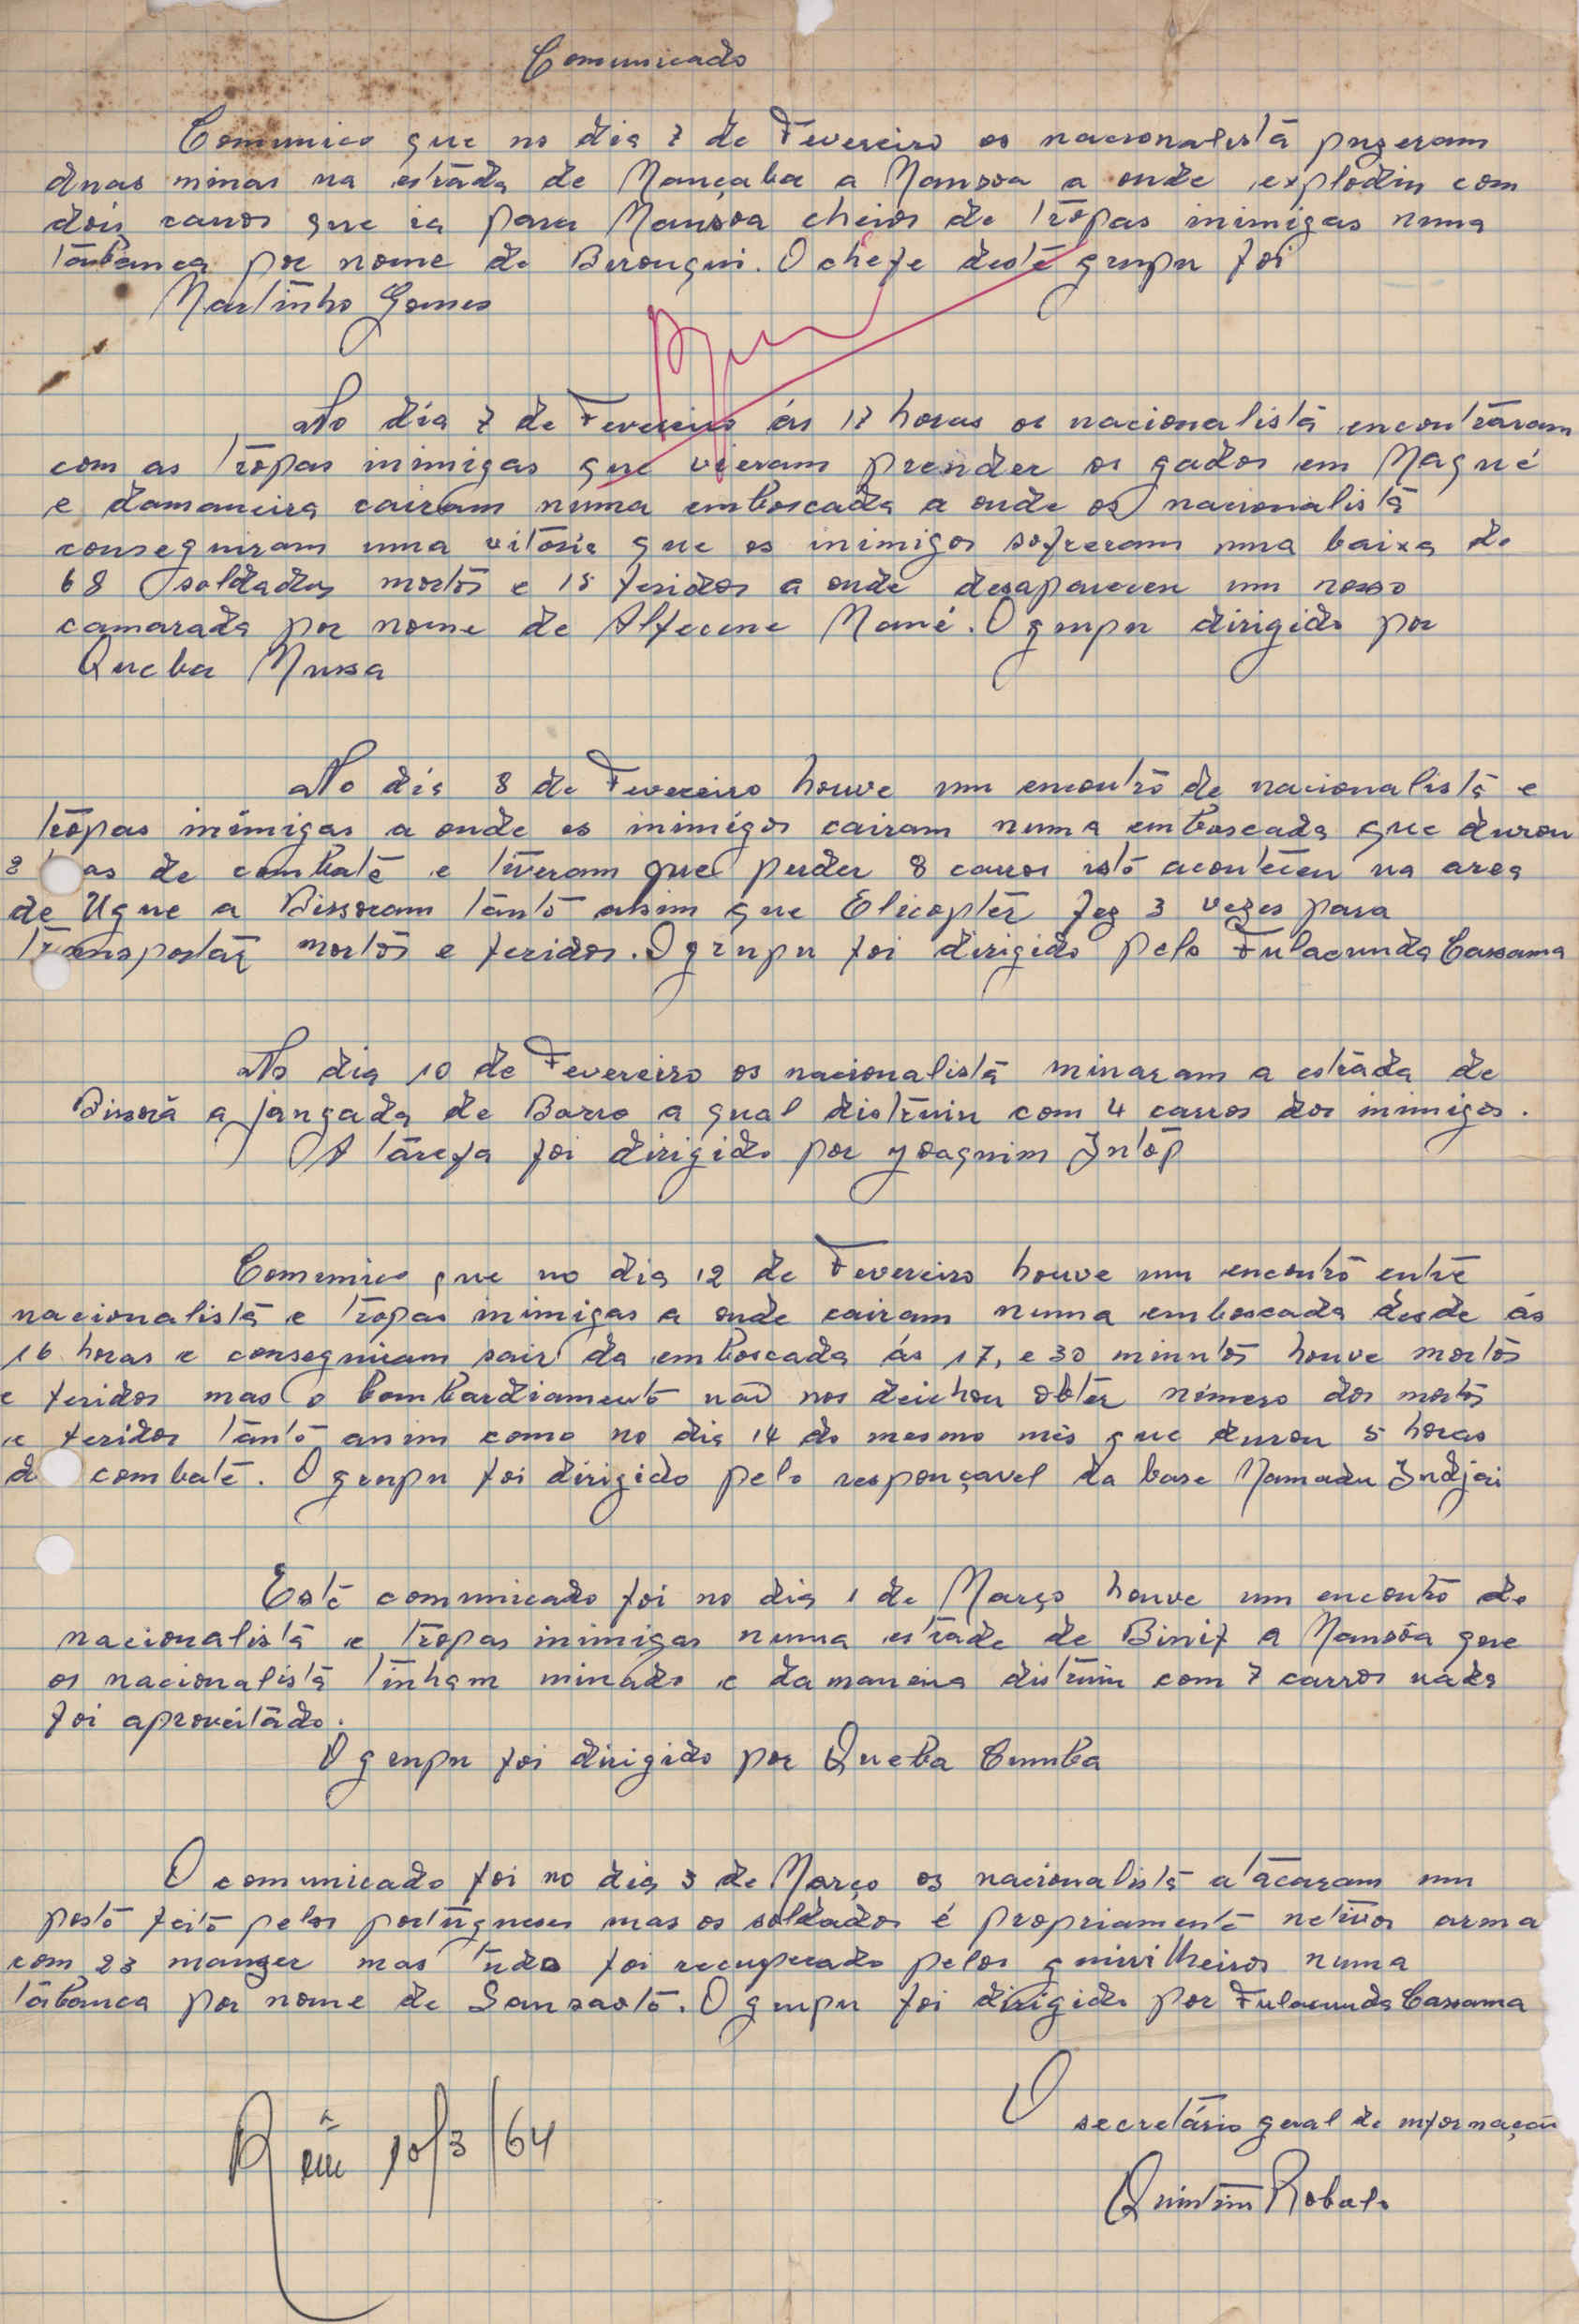 Comunicado
Comunico que no dia 7 de Fevereiro os nacionalistã puzeram
duas minas na estrãda de Mançaba a Mansoa a onde explodiu com
dois carros que ia para Mansoa cheios de tropas inimigas numa
tãbanca por nome de Berouqui. O chefe destè grupu foi
Martinho Gomes
No dia 7 de Fevereiro ás 17 horas os nacionalistã encontrãram
com as tropas inimigas que vieram prender os gados em Maqué
e damaneira cairam numa emboscada a onde os nacionalistã
conseguiram uma vitõria que os inimigos sofreram uma baixa de
68 soldados mortõs e 15 feridos a onde desapareceu um nosso
camarada por nome de Alfecene Mané. O grupu dirigido por
Queba Mussa
No dia 8 de Fevereiro houve um encontrõ de nacionalistã e
trõpas inimigas a onde os inimigos cairam numa emboscada que durou
3 as de combatẽ e tiveram que perder 8 carros istõ acontẽceu na area
de Ugue a Bissoram tãntõ assim que Elicoptẽr fez 3 vezes para
transportãr mortõs e feridos. O grupu foi dirigido pelo Fulacunda Cassama
No dia 10 de Fevereiro os nacionalistã minaram a estrãda de
Bissorã a jangada de Barro a qual distruiu com 4 carros dos inimigos.
A tãrefa foi dirigido por Joaquim Intõp
Comunico que no dia 12 de Fevereiro houve um encontrõ entrẽ
nacionalistã e tropas inimigas a onde cairam numa emboscada desde ás
16 horas e conseguiram sair da emboscada ás 17, e 30 minutõs houve mortõs
e feridos mas o bombardiamentõ não nos deichou obtẽr número dos mortõs
e feridos tãntõ assim como no dia 14 do mesmo mês que durou 5 horas
d combatẽ. O grupu foi dirigido pelo responçavel da base Mamadu Indjai
Estẽ comunicado foi no dia 1 de Março houve um encontrõ de
nacionalistã e trõpas inimigas numa estrade de Binif a Mansõa que
os nacionalistã tinham minado e damaneira distruiu com 7 carros nada
foi aproveitãdo.
O grupu foi dirigido por Queba Cumba
O comunicado foi no dia 3 de Março os nacionalistã atãcaram um
postõ feitõ pelos portũgueses mas os soldados é propriamentẽ netivos arma
com 23 mauzer mas tudo foi recuperado pelos guirrilheiros numa
tãbanca por nome de Sansaotõ. O grupu foi dirigido por Fulacunda Cassama
O
secretãrio geral de informação
Quintim Robalo
10/3/64